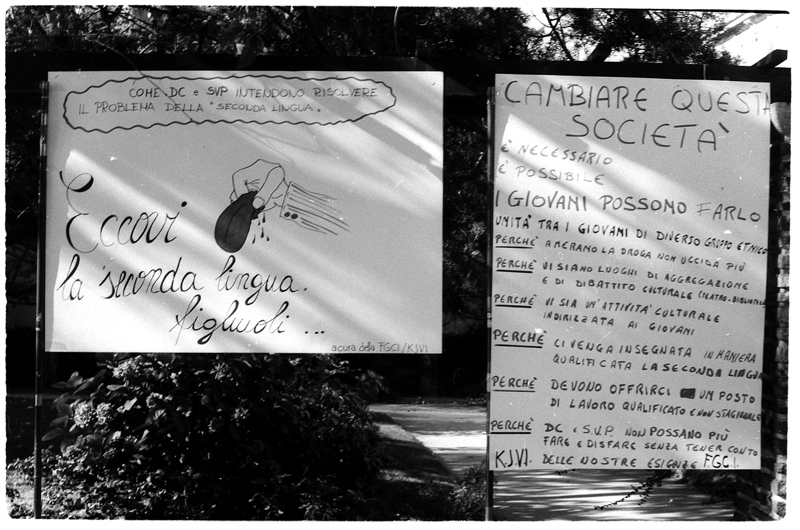 COME DC e SVP INTENDONO RISOLVERE
IL PROBLEMA DELLA "SECONDA LINGUA.
Eccovi
la seconda lingua.
figliuoli ...
a cura della FGCI/KJVI
CAMBIARE QUESTA
SOCIETA'
È NECESSARIO
È POSSIBILE
I GIOVANI POSSONO FARLO
UNITA' TRA I GIOVANI DI DIVERSO GRUPPO ETNICO
PERCHE' A MERANO LA DROGA NON UCCIDA PIU'
PERCHE' VI SIANO LUOGHI DI AGGREGAZIONE
E DI DIBATTITO CULTURALE (TEATRO-BIBLIOTECA
PERCHE' VI SIA UN'ATTIVITA' CULTURALE
INDIRIZZATA AI GIOVANI
PERCHE' CI VENGA INSEGNATA IN MANIERA
QUALIFICATA LA SECONDA LINGUA
PERCHE' DEVONO OFFRIRCI UN POSTO
DI LAVORO QUALIFICATO E NON STAGIONALE
PERCHE' DC e S.V.P. NON POSSANO PIU'
FARE E DISFARE SENZA TENER CONTO
K.J.V.I. DELLE NOSTRE ESIGENZE F.G.C.I.